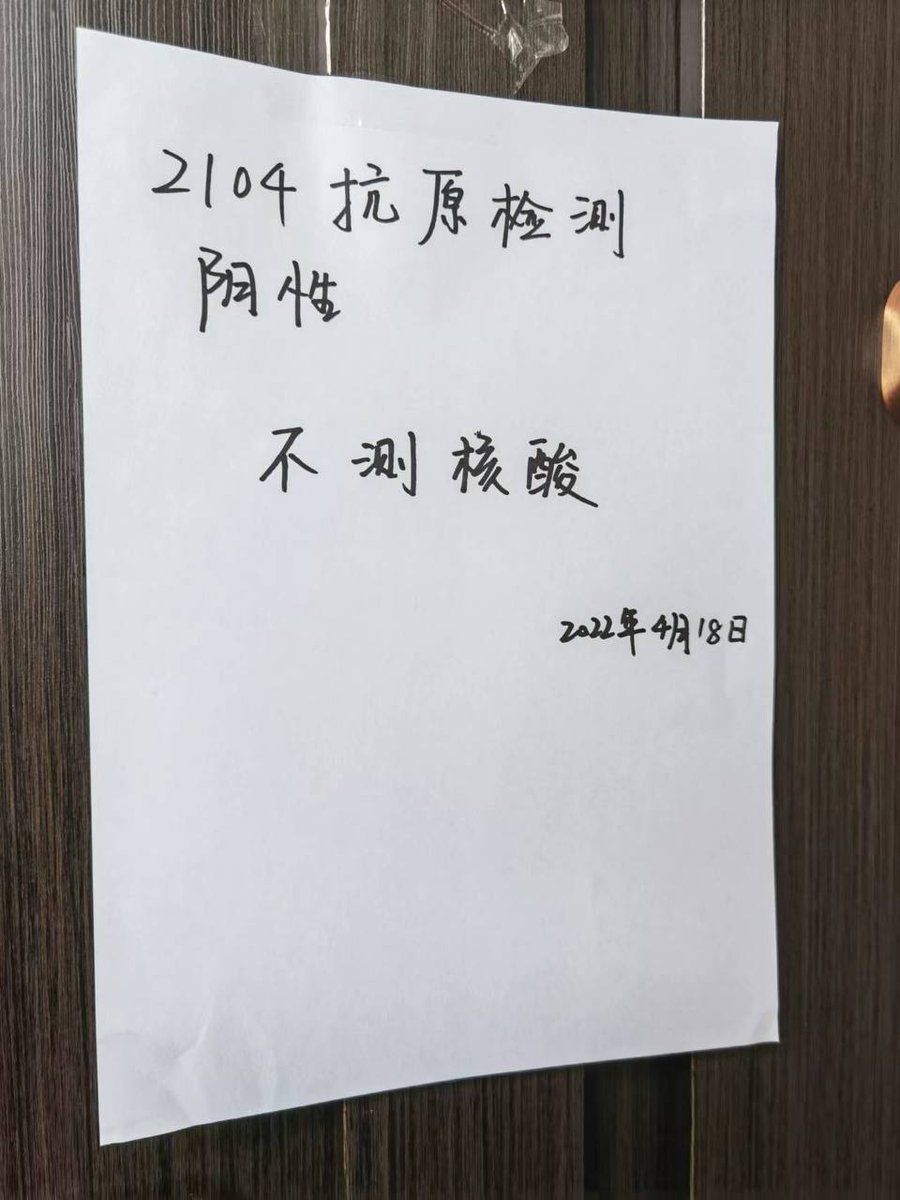 2104 抗原检测
阴性
不测核酸
2022年4月18日